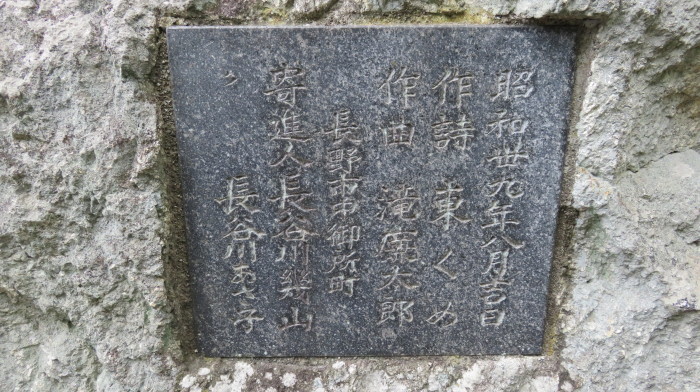 昭和卅九年八月吉日
作詩 東くめ
作曲 滝廉太郎
長野市中御所町
寄進人 長谷川幾山
〃 長谷川　子